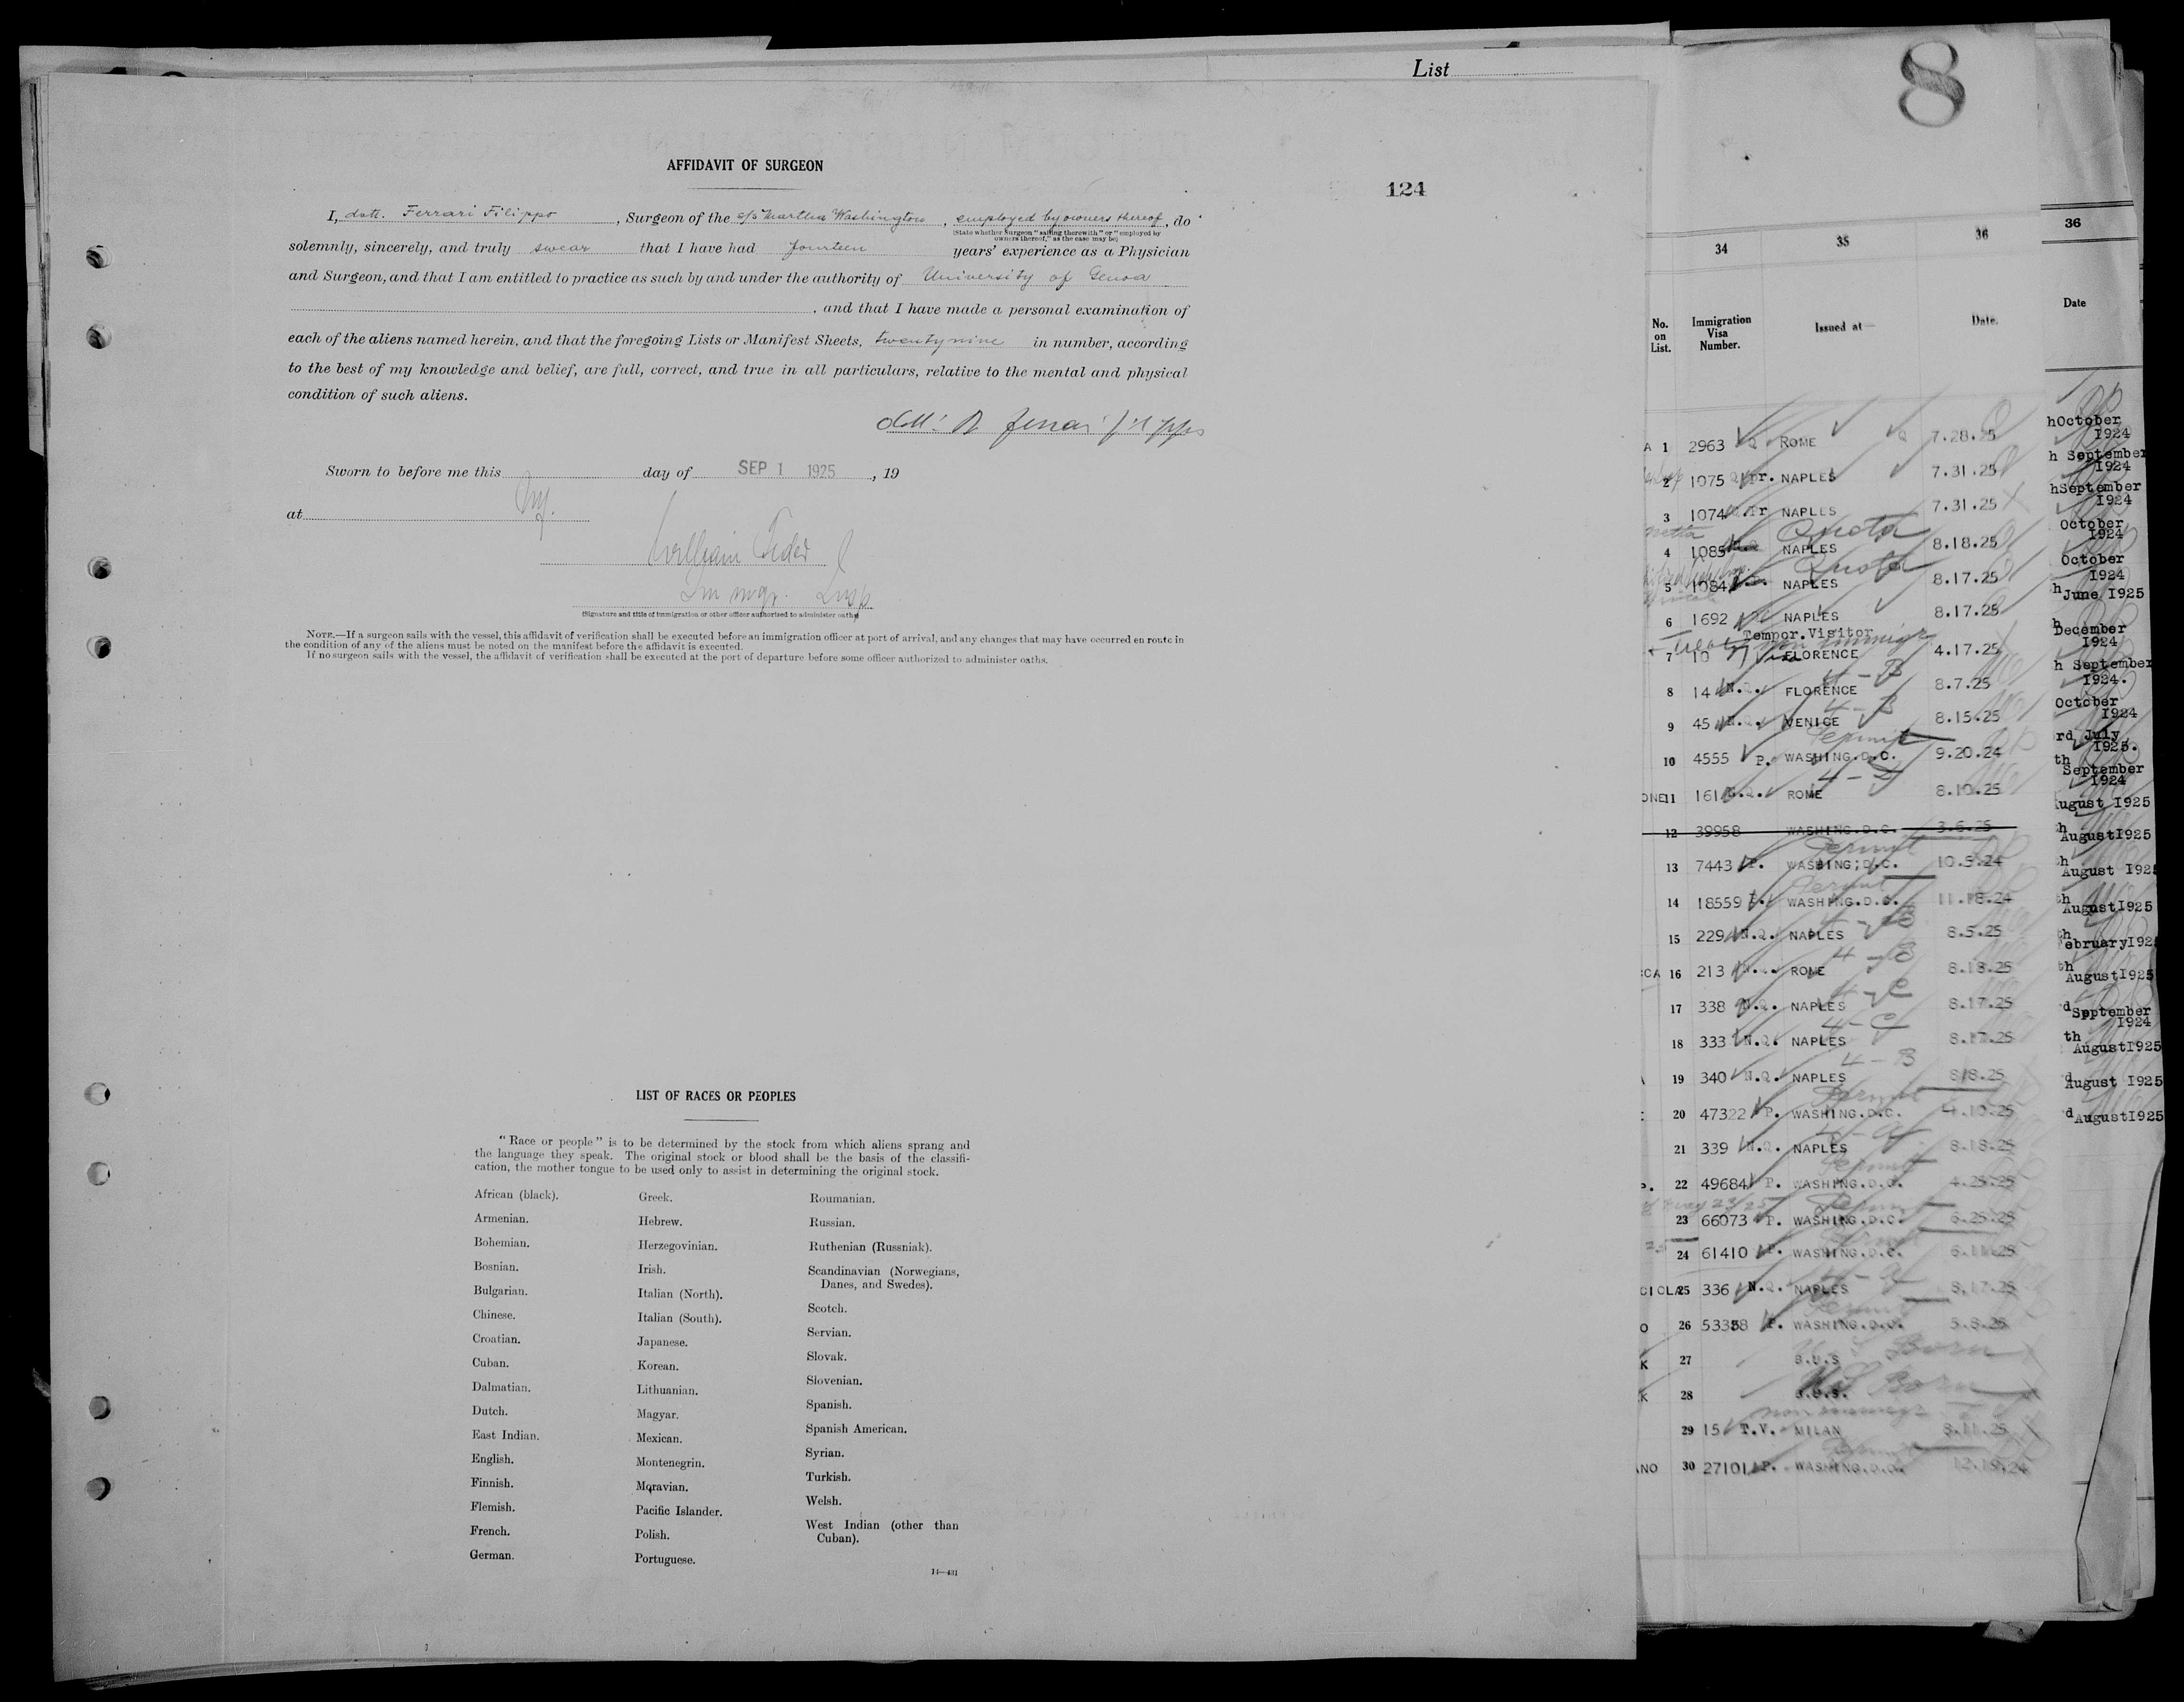 List
8
AFFIDAVIT OF SURGEON
124
I, dott. Ferrari Filippo, Surgeon of the s/s Martha Washington, employed by owners thereof, do
(State whether Surgeon "sailing therewith" or "employed by
owners thereof," as the case may be)
solemnly, sincerely, and truly swear that I have had fourteen years' experience as a Physician
and Surgeon, and that I am entitled to practice as such by and under the authority of University of Genoa
, and that I have made a personal examination of
each of the aliens named herein, and that the foregoing Lists or Manifest Sheets, twenty nine in number, according
to the best of my knowledge and belief, are full, correct, and true in all particulars, relative to the mental and physical
condition of such aliens.
Sworn to before me this day of SEP 1 1925, 19
at NY.
William
Immgr. Insp
(Signature and title of immigration or other officer authorized to administer oaths)
NOTE.—If a surgeon sails with the vessel, this affidavit of verification shall be executed before an immigration officer at port of arrival, and any changes that may have occurred en route in
the condition of any of the aliens must be noted on the manifest before the affidavit is executed.
If no surgeon sails with the vessel, the affidavit of verification shall be executed at the port of departure before some officer authorized to administer oaths.
LIST OF RACES OR PEOPLES
"Race or people" is to be determined by the stock from which aliens sprang and
the language they speak. The original stock or blood shall be the basis of the classifi-
cation, the mother tongue to be used only to assist in determining the original stock.
African (black).
Armenian.
Bohemian.
Bosnian.
Bulgarian.
Chinese.
Croatian.
Cuban.
Dalmatian.
Dutch.
East Indian.
English.
Finnish.
Flemish.
French.
German.
Greek.
Hebrew.
Herzegovinian.
Irish.
Italian (North).
Italian (South).
Japanese.
Korean.
Lithuanian.
Magyar.
Mexican.
Montenegrin.
Moravian.
Pacific Islander.
Polish.
Portuguese.
Roumanian.
Russian.
Ruthenian (Russniak).
Scandinavian (Norwegians,
Danes, and Swedes).
Scotch.
Servian.
Slovak.
Slovenian.
Spanish.
Spanish American.
Syrian.
Turkish.
Welsh.
West Indian (other than
Cuban).
14—431
34 35 36
No.
on
List.
Immigration
Visa
Number.
Issued at—
Date.
A 1 2963 Q. ROME 7.28.25
2 1075 pr. NAPLES 7.31.25
3 1074 pr NAPLES 7.31.25
Quota
4 1085 NAPLES 8.18.25
Quota
5 1084 NAPLES 8.17.25
6 1692 NAPLES 8.17.25
Tempor.Visitor
7 10 FLORENCE 4.17.25
4-B
8 14 N.Q. FLORENCE 8.7.25
4-B
9 45 N.Q. VENICE 8.15.25
Permit
10 4555 P. WASHING.D.C. 9.20.24
11 161 N.Q. ROME 8.10.25
12 39958 WASHING.D.C. 3.6.25
Permit
13 7443 P. WASHING;D.C. 10.5.24
Permit
14 18559 P. WASHING.D.C. 11.18.24
4-B
15 229 N.Q. NAPLES 8.5.25
4-B
16 213 N.Q. ROME 8.18.25
4-C
17 338 N.Q. NAPLES 8.17.25
4-C
18 333 N.Q. NAPLES 8.17.25
4-B
19 340 N.Q. NAPLES 8.8.25
Permit
20 47322 P. WASHING.D.C. 4.10.25
4-a
21 339 N.Q. NAPLES 8.18.25
Permit
22 49684 P. WASHING.D.C. 4.25.25
Permit
23 66073 P. WASHING.D.C. 6.25.25
24 61410 P. WASHING.D.C. 6.11.25
4-a
25 336 N.Q. NAPLES 8.17.25
Permit
26 53358 P. WASHING.D.C. 5.8.25
27 B.U.S Born
28 B.U.S. US Born
29 15 T.V. MILAN 8.11.25
Permit
30 27101 P. WASHING.D.C. 12.19.24
36
Date
hOctober
1924
h September
1924
hSeptember
1924
October
1924
October
1924
h June I925
h December
1924
h September
I924.
October
I924
rd July
I925.
th September
I924
ugust I925
h AugustI925
h August I925
th AugustI925
th ebruaryI925
th AugustI925
d September
I924
th AugustI925
d August I925
d AugustI925